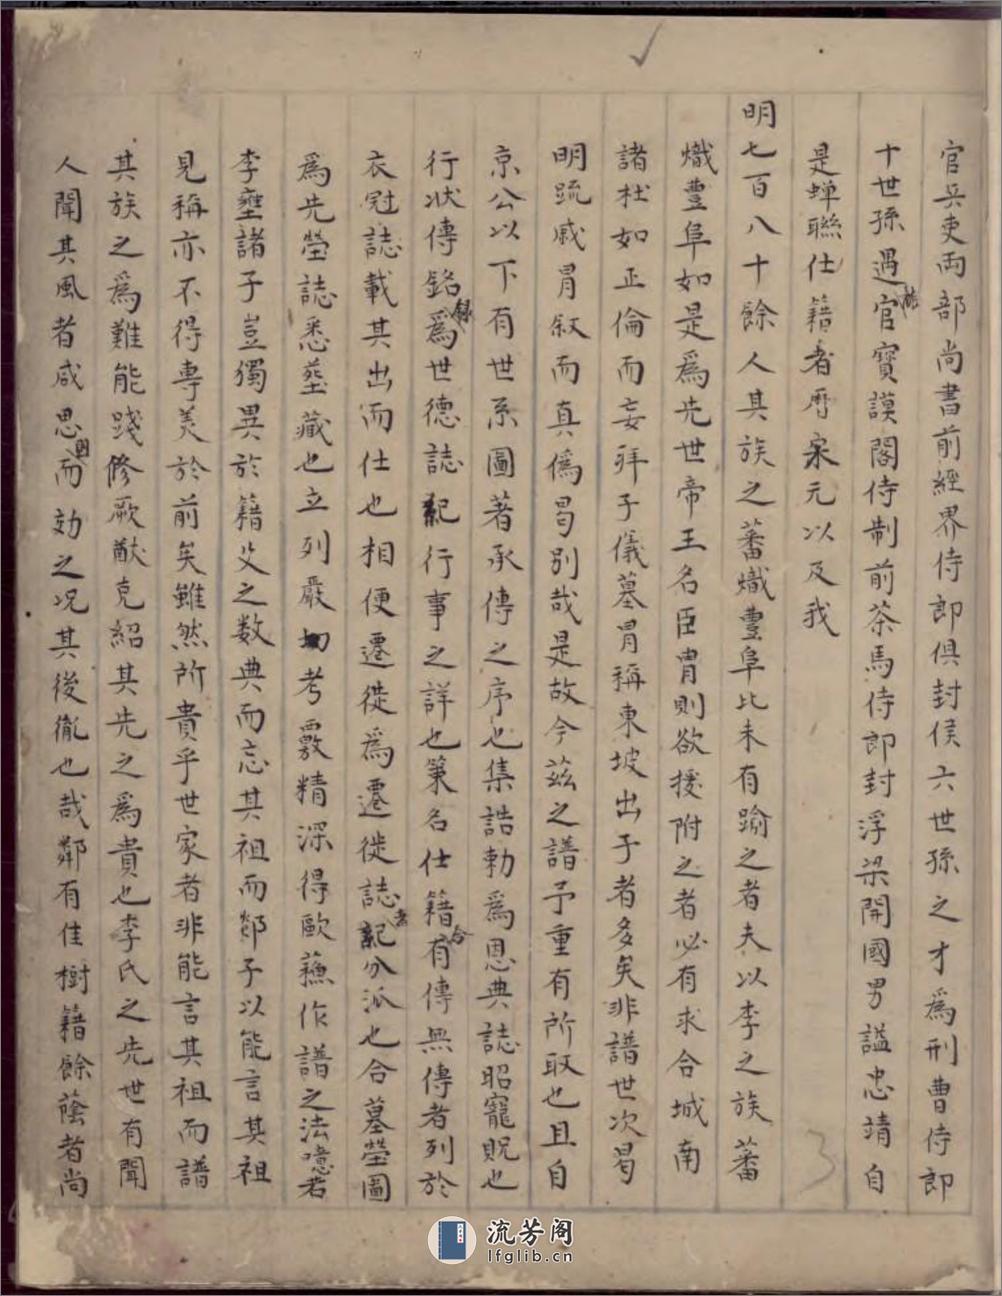 官兵吏両部尚書前經界侍郎俱封侯六世孫之才爲刑曹侍郎
十世孫遇官寶謨閣侍制前茶馬侍郎封浮梁開國男謚忠靖自
是蝉聯仕籍者厯宋元以及我
明七百八十餘人其族之蕃熾豊阜比未有踰之者夫以李之族蕃
熾豊阜如是爲先世帝王名臣胄則欲援附之者必有求合城南
諸杜如正倫而妄拜子儀墓冐稱東坡出于者多矣非譜世次曷
明疏戚胄叙而真僞曷別哉是故今茲之譜予重有所取也且自
京公以下有世系圖著承傳之序也集誥勅爲恩典誌昭寵貺也
行狀傳銘録爲世德誌紀行事之詳也策名仕籍有傳無傳者列於
衣冠誌載其出而仕也相便遷徙爲遷徙誌記分派也合墓塋圖
爲先塋誌悉塟藏也立列嚴切考覈精深得歐蘓作譜之法噫若
李壅諸子豈獨異於籍父之数典而忘其祖而郯子以能言其祖
見稱亦不得專美於前矣雖然所貴乎世家者非能言其祖而譜
其族之爲難能踐修厥猷克紹其先之爲貴也李氏之先世有聞
人聞其風者咸思而効之况其後胤也哉鄰有佳樹籍餘蔭者尚
流芳阁
lfglib.cn